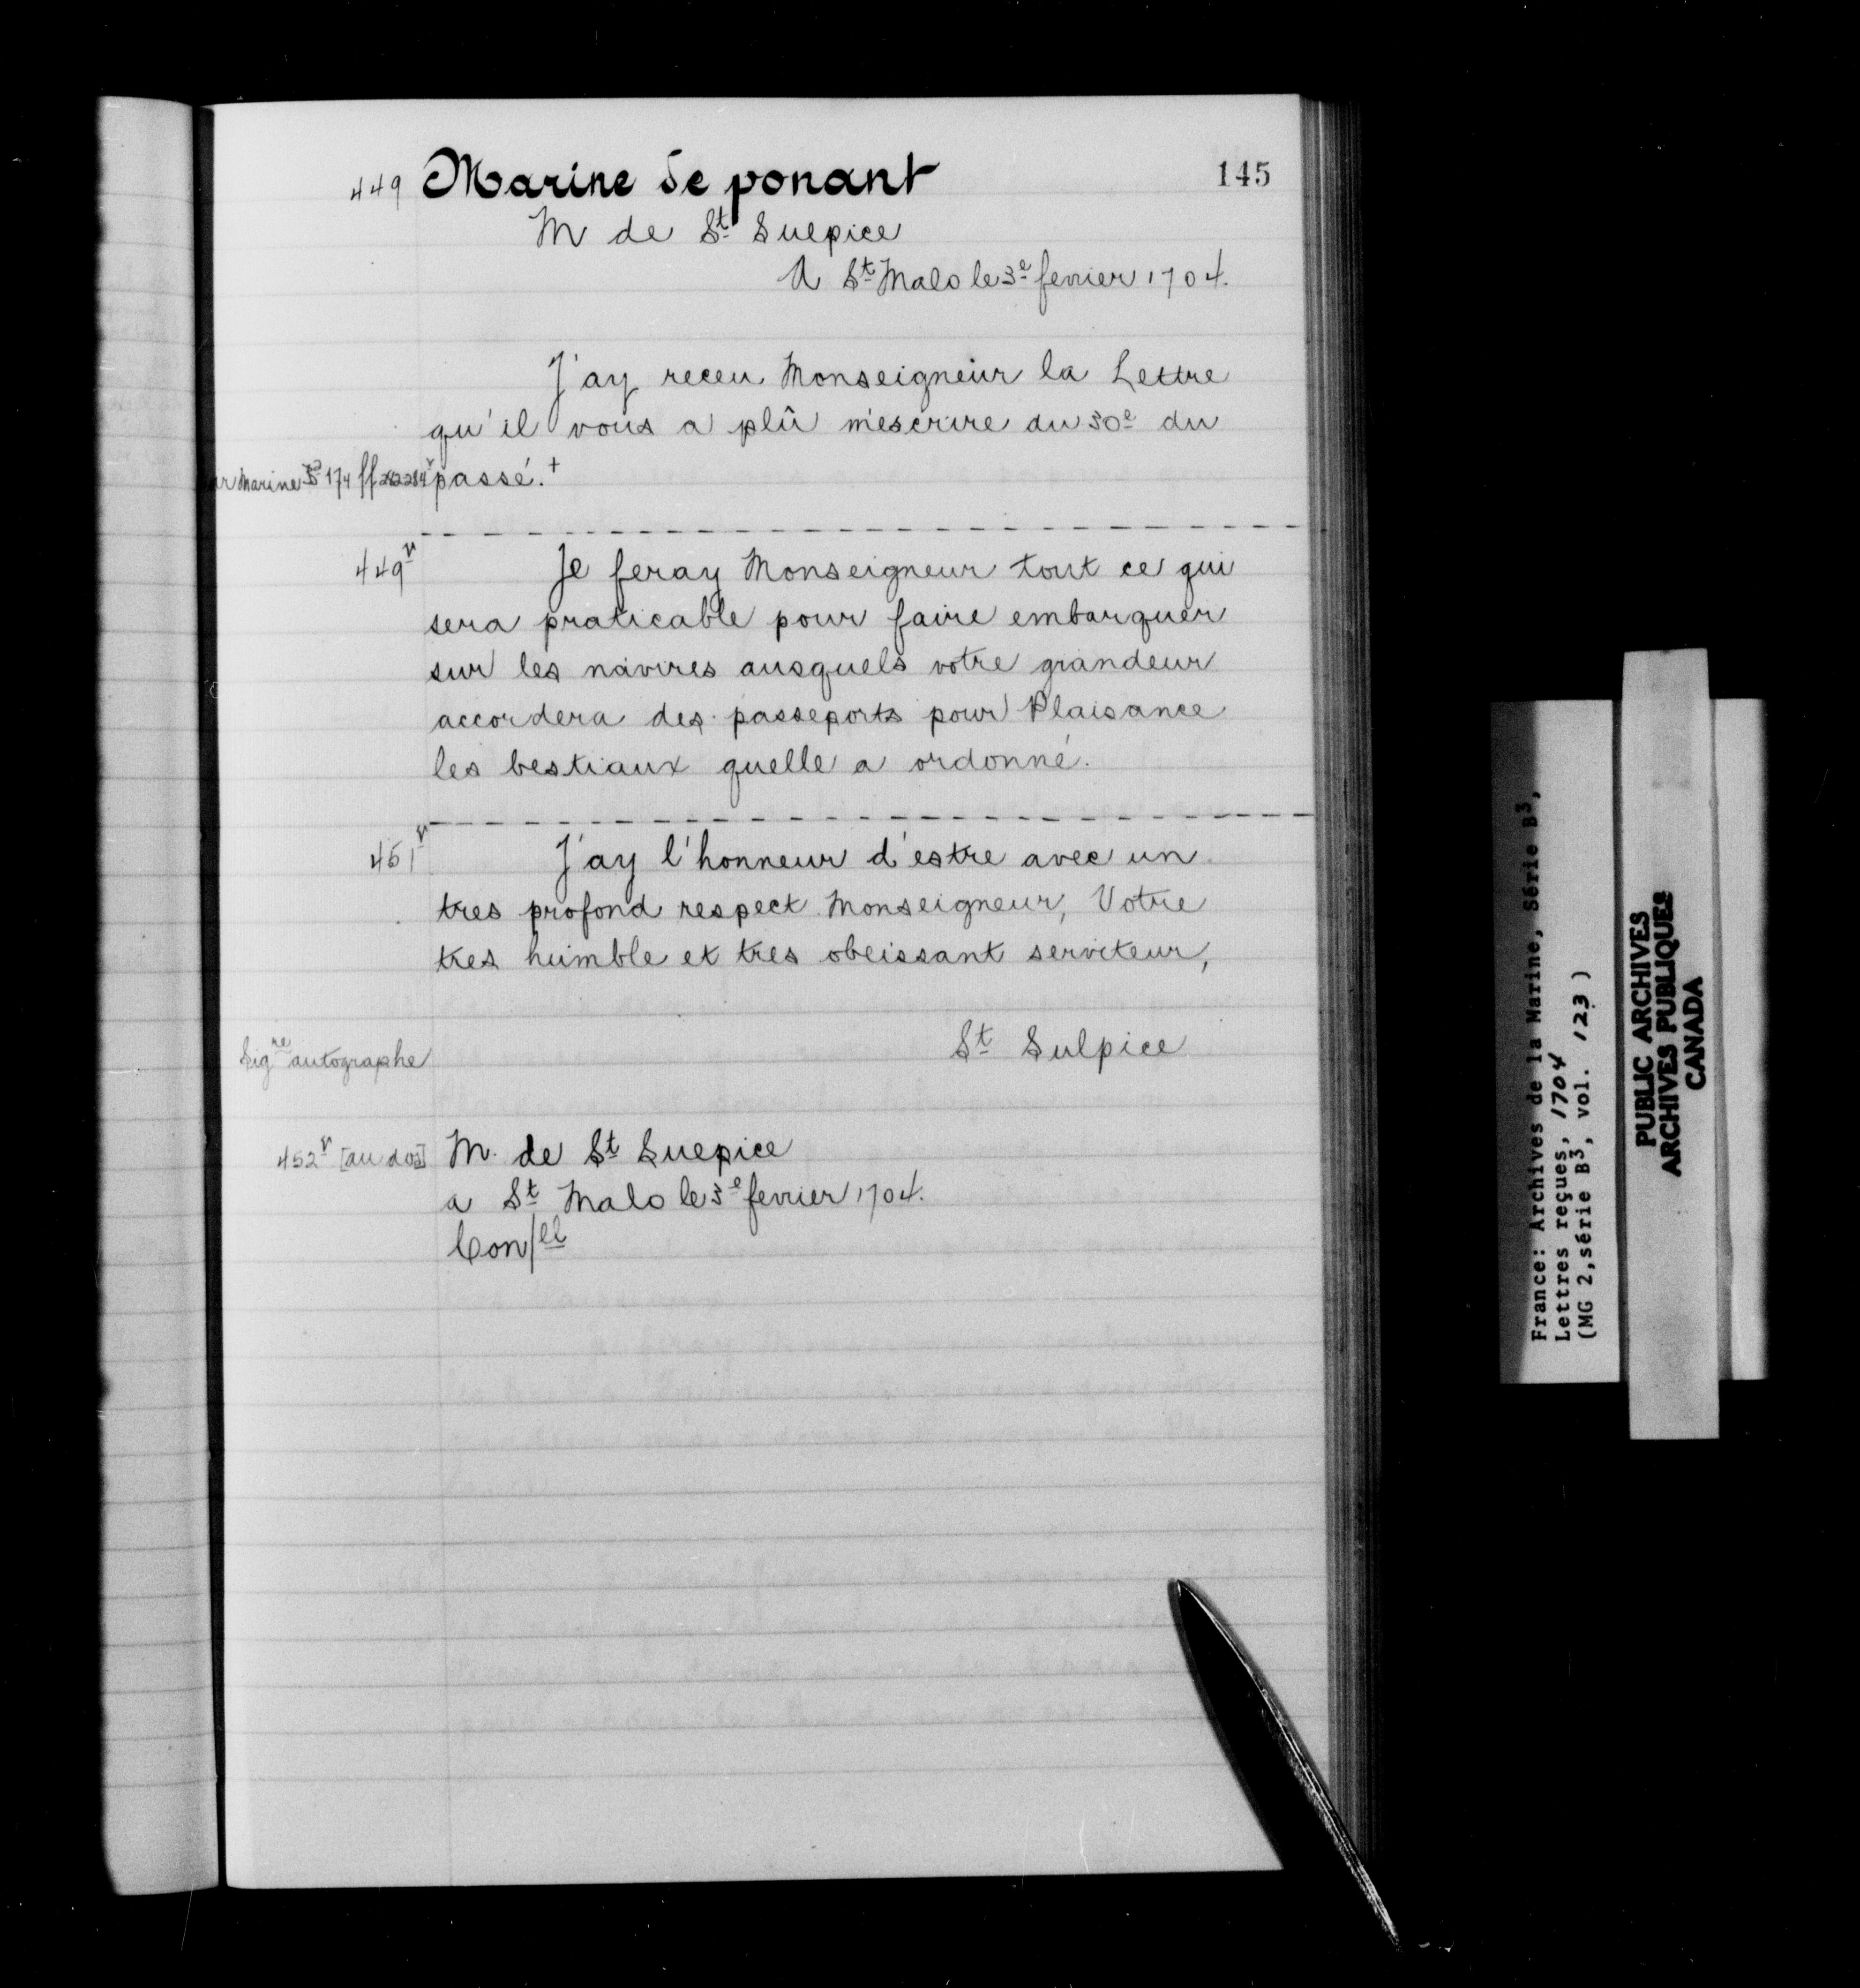 449 Marine de ponant 145
M de St Sulpice
A St Malo le 3e fevrier 1704.
J'ay receu Monseigneur la Lettre
qu'il vous a plû m'escrire du 30e du
Marine 174 ff passé. +
449v Je feray Monseigneur tout ce qui
sera praticable pour faire embarquer
sur les navires ausquels votre grandeur
accordera des passeports pour Plaisance
les bestiaux quelle a ordonné.
451v J'ay l'honneur d'estre avec un
tres profond respect Monseigneur, Votre
tres humble et tres obeissant serviteur,
St Sulpice
Sigre autographe
452v [au dos] M. de St Sulpice
a St Malo le 3e fevrier 1704.
France: Archives de la Marine, Série B3,
Lettres reçues, 1704
(MG 2, série B3, vol. 123)
PUBLIC ARCHIVES
ARCHIVES PUBLIQUES
CANADA